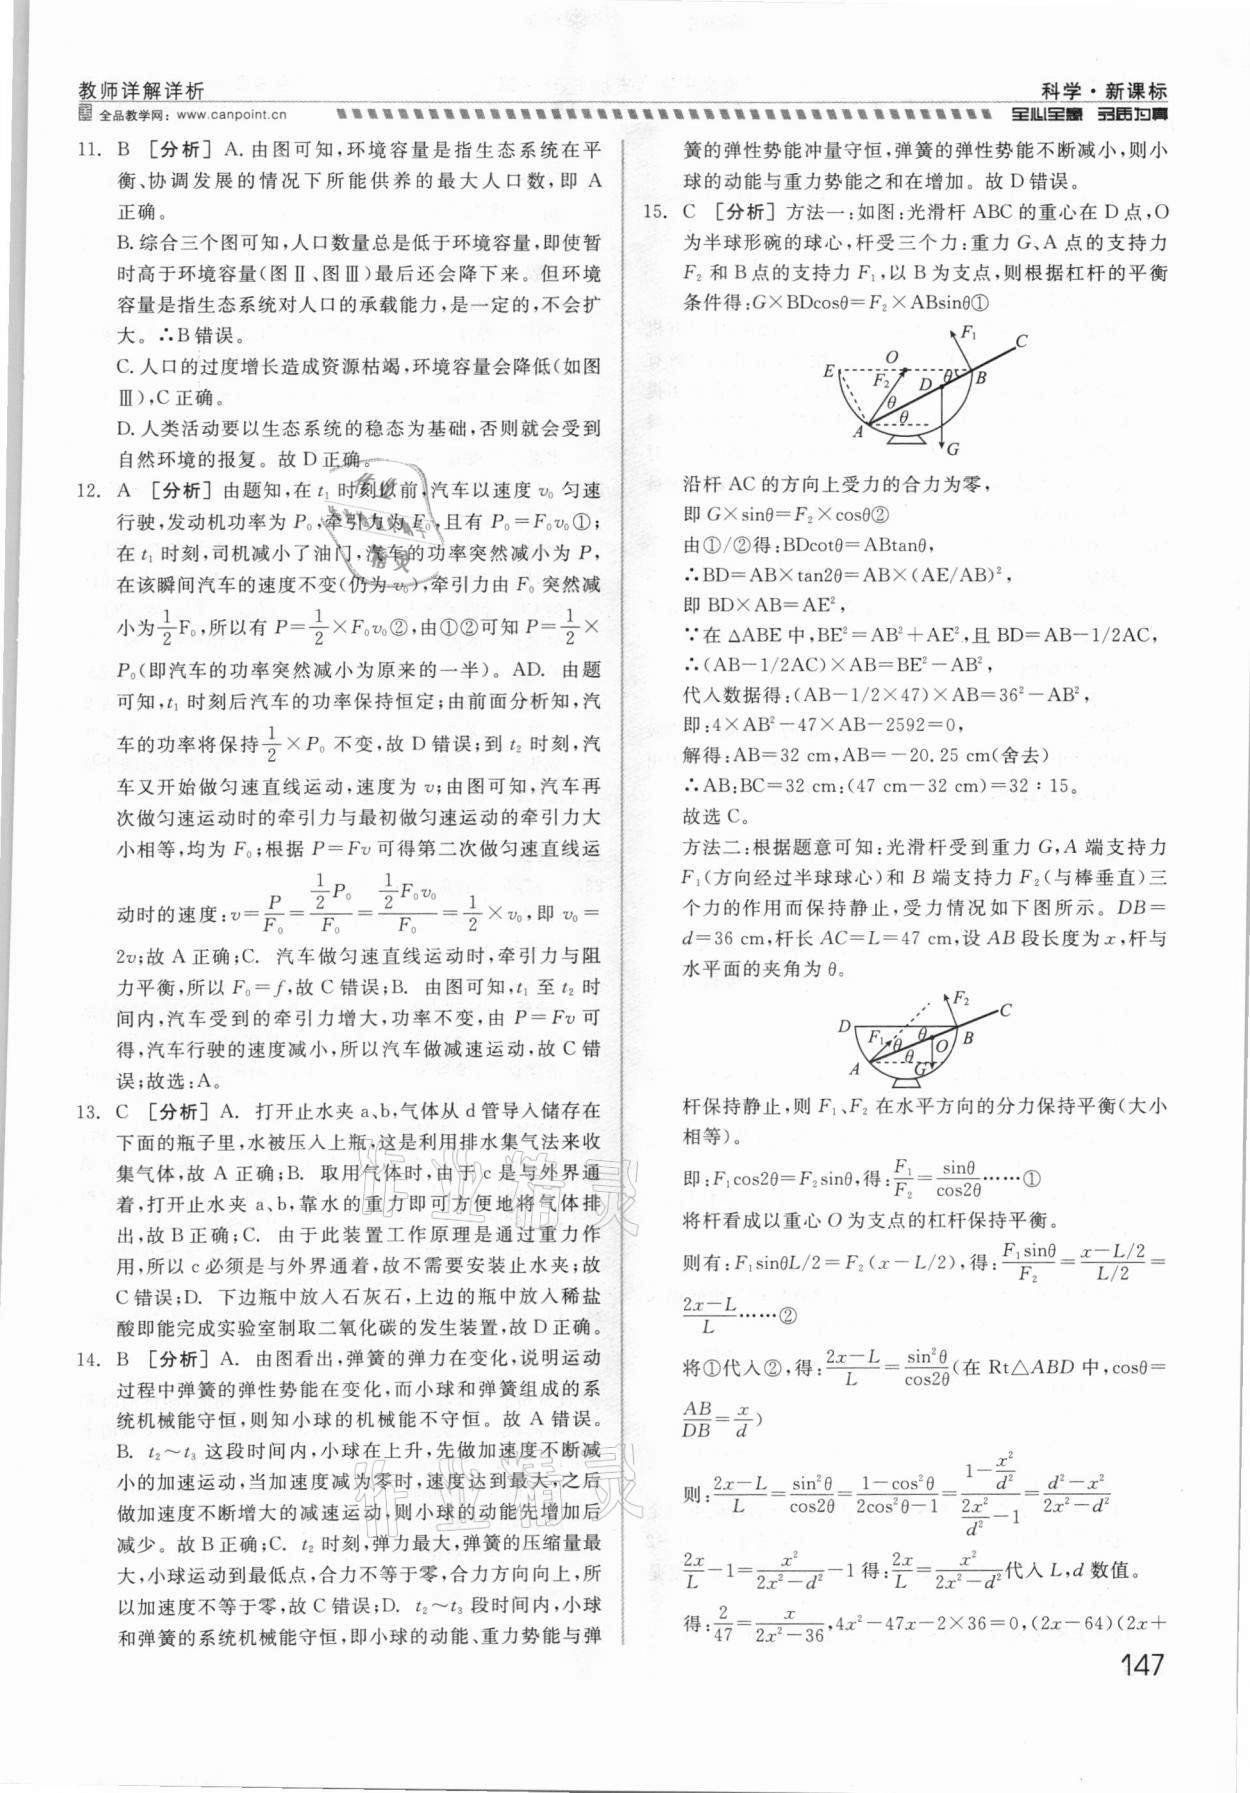 教师详解详析
全品教学网：www.canpoint.cn
科学·新课标
全心全意 品质为真
11. B ［分析］A. 由图可知,环境容量是指生态系统在平
衡、协调发展的情况下所能供养的最大人口数,即 A
正确。
B. 综合三个图可知,人口数量总是低于环境容量,即使暂
时高于环境容量(图Ⅱ、图Ⅲ)最后还会降下来。但环境
容量是指生态系统对人口的承载能力,是一定的,不会扩
大。∴B 错误。
C. 人口的过度增长造成资源枯竭,环境容量会降低(如图
Ⅲ),C 正确。
D. 人类活动要以生态系统的稳态为基础,否则就会受到
自然环境的报复。故 D 正确。
12. A ［分析］由题知,在 t₁ 时刻以前,汽车以速度 v₀ 匀速
行驶,发动机功率为 P₀,牵引力为 F₀,且有 P₀=F₀v₀①;
在 t₁ 时刻,司机减小了油门,汽车的功率突然减小为 P,
在该瞬间汽车的速度不变(仍为 v₀),牵引力由 F₀ 突然减
小为1/2F₀,所以有 P=1/2×F₀v₀②,由①②可知 P=1/2×
P₀(即汽车的功率突然减小为原来的一半)。AD. 由题
可知,t₁ 时刻后汽车的功率保持恒定;由前面分析知,汽
车的功率将保持1/2×P₀ 不变,故 D 错误;到 t₂ 时刻,汽
车又开始做匀速直线运动,速度为 v;由图可知,汽车再
次做匀速运动时的牵引力与最初做匀速运动的牵引力大
小相等,均为 F₀;根据 P=Fv 可得第二次做匀速直线运
动时的速度:v=P/F₀=(1/2P₀)/F₀=(1/2F₀v₀)/F₀=1/2×v₀,即 v₀=
2v;故 A 正确;C. 汽车做匀速直线运动时,牵引力与阻
力平衡,所以 F₀=f,故 C 错误;B. 由图可知,t₁ 至 t₂ 时
间内,汽车受到的牵引力增大,功率不变,由 P=Fv 可
得,汽车行驶的速度减小,所以汽车做减速运动,故 C 错
误;故选:A。
13. C ［分析］A. 打开止水夹 a、b,气体从 d 管导入储存在
下面的瓶子里,水被压入上瓶,这是利用排水集气法来收
集气体,故 A 正确;B. 取用气体时,由于 c 是与外界通
着,打开止水夹 a、b,靠水的重力即可方便地将气体排
出,故 B 正确;C. 由于此装置工作原理是通过重力作
用,所以 c 必须是与外界通着,故不需要安装止水夹;故
C 错误;D. 下边瓶中放入石灰石,上边的瓶中放入稀盐
酸即能完成实验室制取二氧化碳的发生装置,故 D 正确。
14. B ［分析］A. 由图看出,弹簧的弹力在变化,说明运动
过程中弹簧的弹性势能在变化,而小球和弹簧组成的系
统机械能守恒,则知小球的机械能不守恒。故 A 错误。
B. t₂～t₃ 这段时间内,小球在上升,先做加速度不断减
小的加速运动,当加速度减为零时,速度达到最大,之后
做加速度不断增大的减速运动,则小球的动能先增加后
减少。故 B 正确;C. t₂ 时刻,弹力最大,弹簧的压缩量最
大,小球运动到最低点,合力不等于零,合力方向向上,所
以加速度不等于零,故 C 错误;D. t₂～t₃ 段时间内,小球
和弹簧的系统机械能守恒,即小球的动能、重力势能与弹
簧的弹性势能冲量守恒,弹簧的弹性势能不断减小,则小
球的动能与重力势能之和在增加。故 D 错误。
15. C ［分析］方法一:如图:光滑杆 ABC 的重心在 D 点,O
为半球形碗的球心,杆受三个力:重力 G、A 点的支持力
F₂ 和 B 点的支持力 F₁,以 B 为支点,则根据杠杆的平衡
条件得:G×BDcosθ=F₂×ABsinθ①
F₁ C
E O F₂ D θ B
θ θ
A G
沿杆 AC 的方向上受力的合力为零,
即 G×sinθ=F₂×cosθ②
由①/②得:BDcotθ=ABtanθ,
∴BD=AB×tan2θ=AB×(AE/AB)²,
即 BD×AB=AE²,
∵在 △ABE 中,BE²=AB²+AE²,且 BD=AB−1/2AC,
∴(AB−1/2AC)×AB=BE²−AB²,
代入数据得:(AB−1/2×47)×AB=36²−AB²,
即:4×AB²−47×AB−2592=0,
解得:AB=32 cm,AB=−20.25 cm(舍去)
∴AB:BC=32 cm:(47 cm−32 cm)=32∶15。
故选 C。
方法二:根据题意可知:光滑杆受到重力 G,A 端支持力
F₁(方向经过半球球心)和 B 端支持力 F₂(与棒垂直)三
个力的作用而保持静止,受力情况如下图所示。DB=
d=36 cm,杆长 AC=L=47 cm,设 AB 段长度为 x,杆与
水平面的夹角为 θ。
F₂ C
D F₁ θ θ O B
A θ G
杆保持静止,则 F₁、F₂ 在水平方向的分力保持平衡(大小
相等)。
即:F₁cos2θ=F₂sinθ,得:F₁/F₂=sinθ/cos2θ……①
将杆看成以重心 O 为支点的杠杆保持平衡。
则有:F₁sinθL/2=F₂(x−L/2),得:F₁sinθ/F₂=(x−L/2)/(L/2)=
(2x−L)/L……②
将①代入②,得:(2x−L)/L=sin²θ/cos2θ(在 Rt△ABD 中,cosθ=
AB/DB=x/d)
则:(2x−L)/L=sin²θ/cos2θ=(1−cos²θ)/(2cos²θ−1)=(1−x²/d²)/(2x²/d²−1)=(d²−x²)/(2x²−d²)
2x/L−1=x²/(2x²−d²)−1 得:2x/L=x²/(2x²−d²)代入 L,d 数值。
得:2/47=x/(2x²−36),4x²−47x−2×36=0,(2x−64)(2x+
147
作业精灵
作业精灵